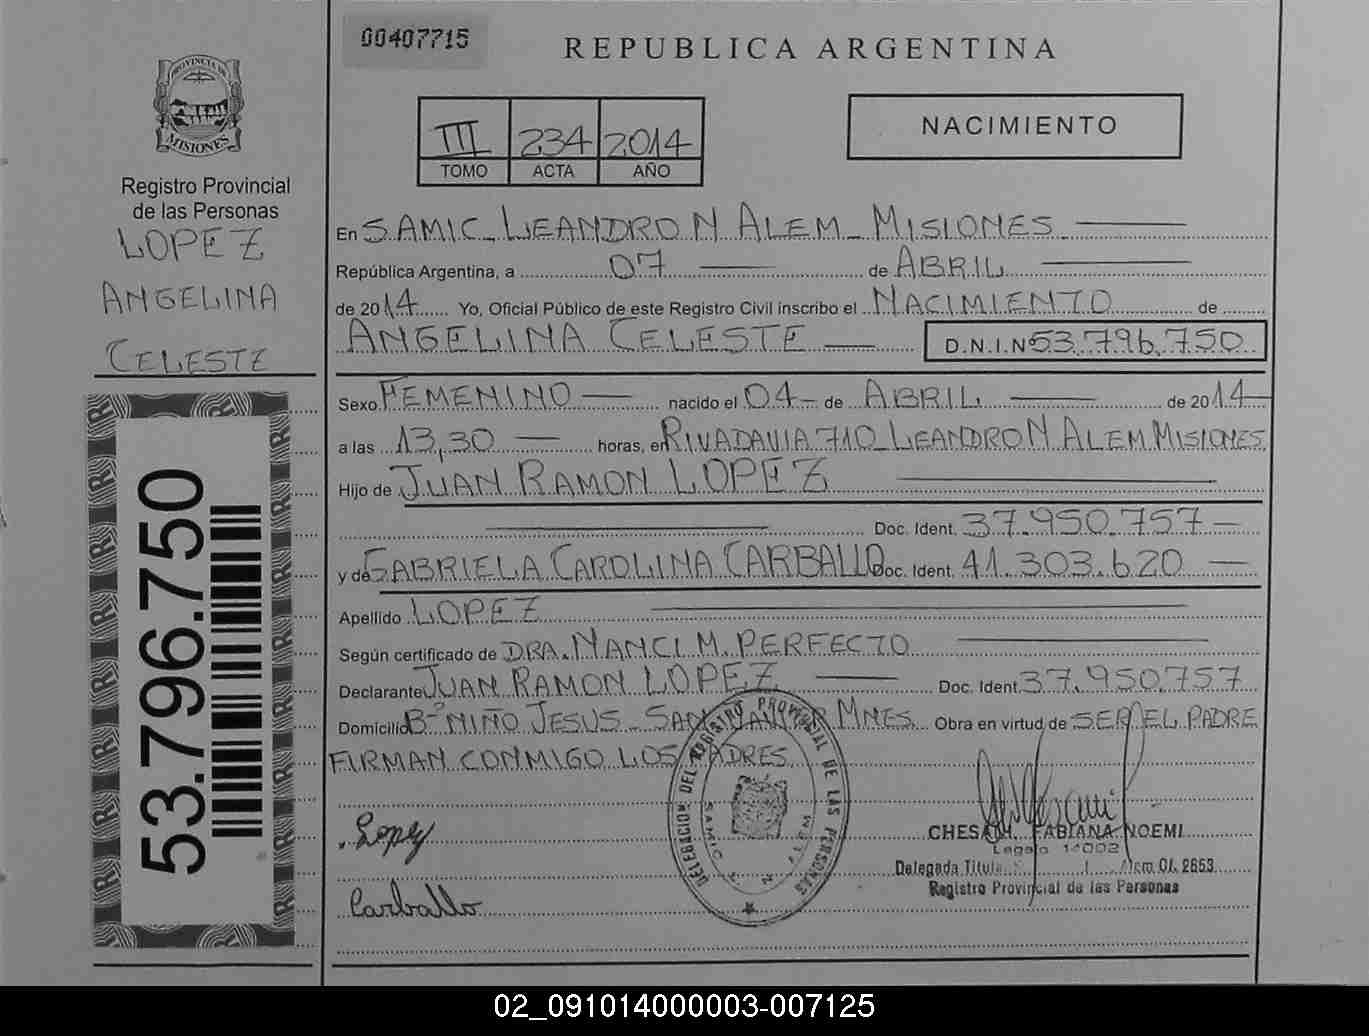 00407715
REPUBLICA ARGENTINA
PROVINCIA DE
MISIONES
Registro Provincial
de las Personas
LOPEZ
ANGELINA
CELESTE
53.796.750
III 234 2014
TOMO ACTA AÑO
NACIMIENTO
En SAMIC LEANDRO N ALEM - MISIONES
República Argentina, a 07 de ABRIL
de 2014 Yo, Oficial Público de este Registro Civil inscribo el NACIMIENTO de
ANGELINA CELESTE D.N.I.Nº 53.796.750
Sexo FEMENINO nacido el 04 de ABRIL de 2014
a las 13,30 horas, en RIVADAVIA 710 LEANDRO N ALEM MISIONES
Hijo de JUAN RAMON LOPEZ
Doc. Ident. 37.950.757
y de GABRIELA CAROLINA CARBALLO Doc. Ident. 41.303.620
Apellido LOPEZ
Según certificado de DRA. NANCI M. PERFECTO
Declarante JUAN RAMON LOPEZ Doc. Ident. 37.950.757
Domicilio Bº NIÑO JESUS - SAN JAVIER MNES. Obra en virtud de SER EL PADRE
FIRMAN CONMIGO LOS PADRES
DELEGACION DEL REGISTRO PROVINCIAL DE LAS PERSONAS
SAMIC
Lopez
Carballo
FABIANA NOEMI
Legajo 14002
Delegada Titular Alem Of. 2653
Registro Provincial de las Personas
02_091014000003-007125